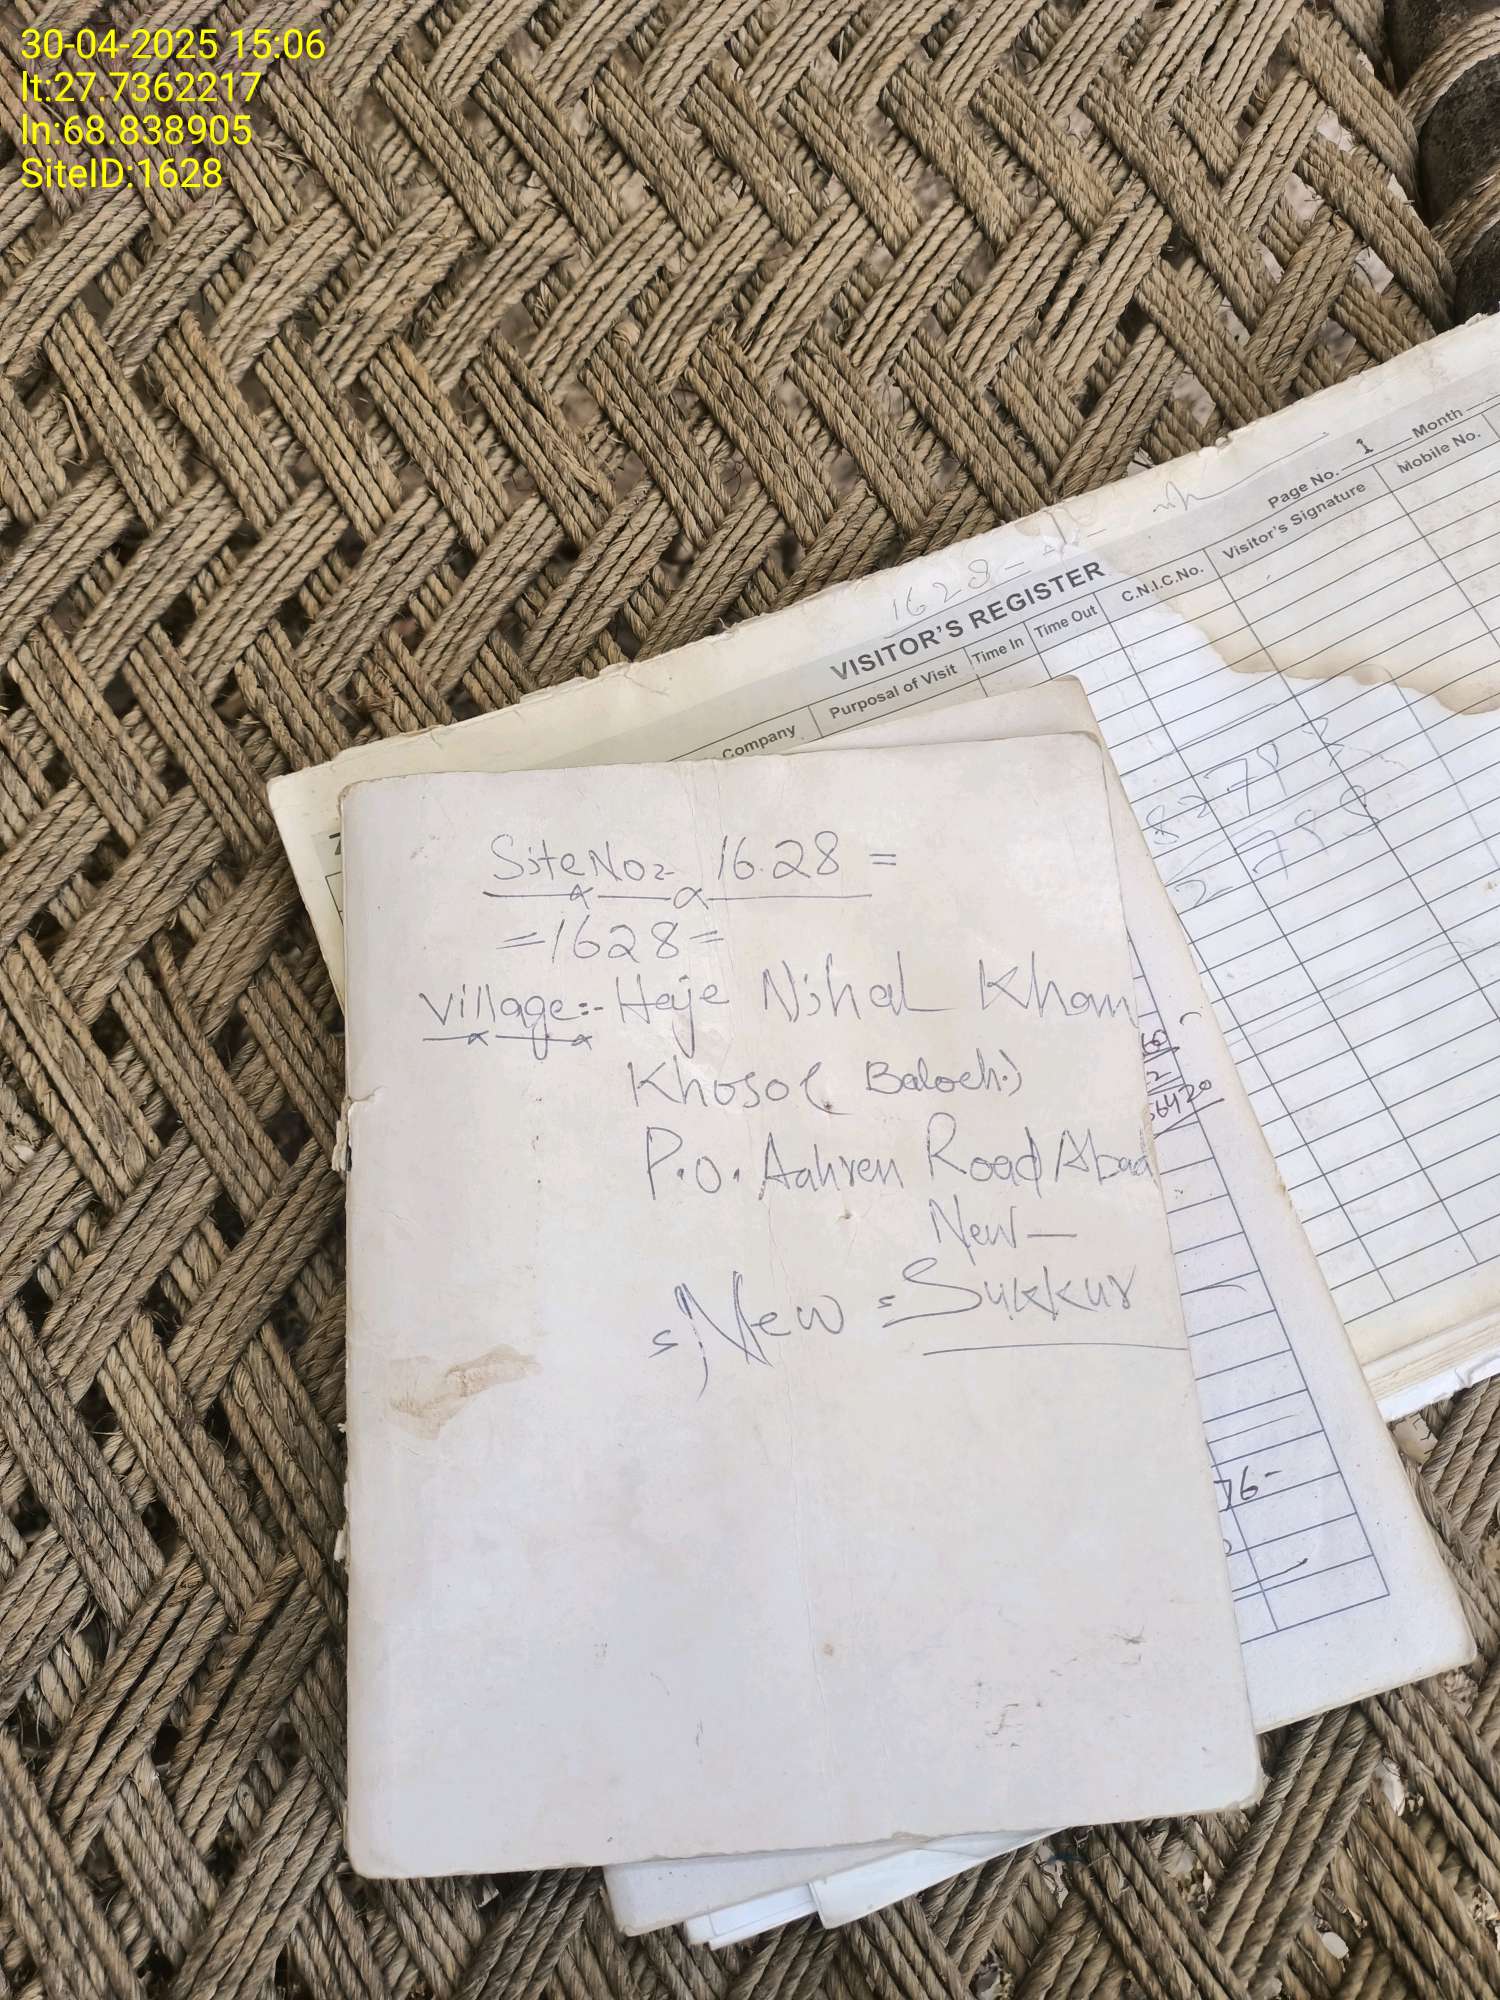 30-04-2025 15:06
lt:27.7362217
ln:68.838905
SiteID:1628
Page No. 1 Month
1628-
VISITOR'S REGISTER
Company
Purposal of Visit
Time In
Time Out
C.N.I.C.No.
Visitor's Signature
Mobile No.
Site No:- 16.28 =
=1628=
Village:- Haje Nihal Khan
Khoso ( Baloch.)
P.O. Aahren Road Abad
New —
= New = Sukkur
56420
76-